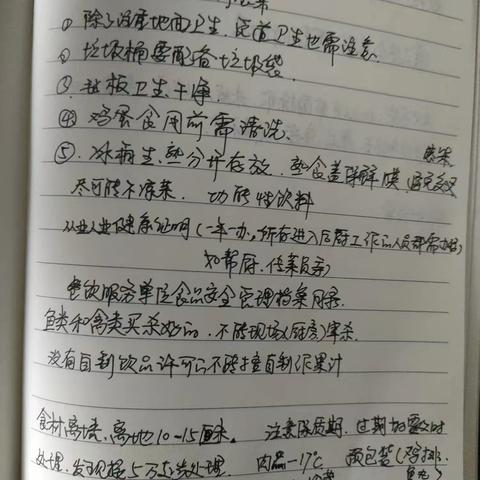 ① 除了注意地面卫生,民道卫生也需注意.
② 垃圾桶要配备垃圾袋.
③ 砧板卫生干净.
④ 鸡蛋食用前需清洗.
⑤. 冰柜生、熟分开存放. 熟食盖保鲜膜,避免交叉
感染.
尽可能不凉菜. 功能性饮料
从业人员健康证明(一年一办,所有进入后厨工作的人员都需办)
如帮厨、传菜员等)
餐饮服务单位食品安全管理档案
鱼类和禽类买杀好的,不能现场(厨房)宰杀.
没有自制饮品许可的不能擅自制作果汁
食材离墙、离地10-15厘米。 注意保质期,过期的要及时
处理,发现按5万起步处理. 肉品-17℃ 预包装(鸡排、